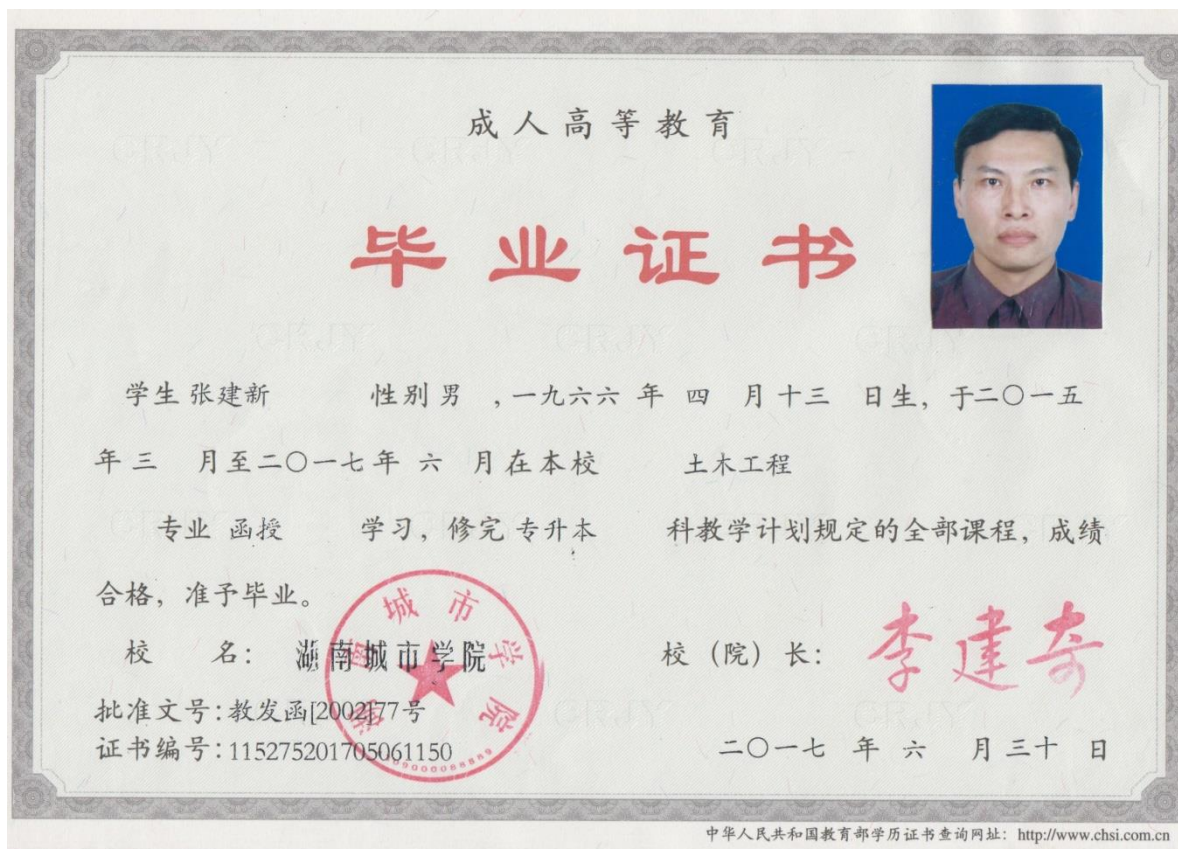 成人高等教育
毕业证书
学生 张建新 性别 男 , 一九六六 年 四 月 十三 日生, 于二〇一五
年 三 月至二〇一七 年 六 月在本校 土木工程
专业 函授 学习, 修完 专升本 科教学计划规定的全部课程, 成绩
合格, 准予毕业。
校 名: 湖南城市学院 校 (院) 长: 李建奇
湖南城市学院
批准文号: 教发函[2002]77号
证书编号: 115275201705061150 二〇一七 年 六 月 三十 日
中华人民共和国教育部学历证书查询网址: http://www.chsi.com.cn